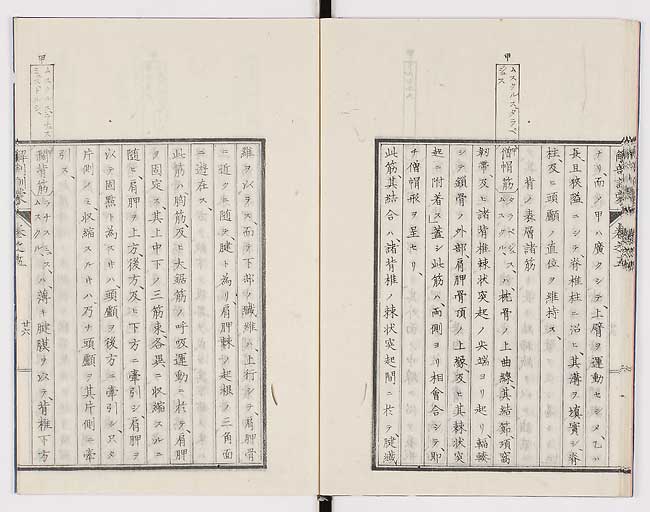 ナリ、而シテ甲ハ廣クシテ、上臂ヲ運動セシメ、乙ハ
長且狹隘ニシテ脊椎柱ニ沿ヒ、其溝ヲ填實シ、脊
柱及ヒ頭顱ノ直位ヲ維持ス、
背ノ表層諸筋
甲
ムスクルスタラペ
僧帽筋
ハ、枕骨ノ上曲線、其結節、項窩
靭帶、及ヒ諸脊椎棘狀突起ノ尖端ヨリ起リ、輻輳
シテ鎖骨ノ外部、肩胛骨頂ノ上縁、及ヒ其棘狀突
起ニ附着ス、蓋シ此筋ハ、兩側ヨリ相會合シテ、即
チ僧帽形ヲ呈セリ、
此筋其結合ハ、諸脊椎ノ棘狀突起間ニ於テ腱纖
維ヲ以テス、而シテ下部ノ纖維ハ上行シテ、肩胛骨
ニ近クニ隨テ腱ト為リ、肩胛棘ノ起根ノ三角面
ニ遊在ス、
此筋ハ、胸筋及ヒ大鋸筋ノ呼吸運動ニ於テ肩胛
ヲ固定ス、其上中下ノ三筋束各異ニ收縮スルニ
隨ヒ、肩胛ヲ上方、後方、及ヒ下方ニ牽引シ、肩胛ヲ
以テ固點ト為スキハ、頭顱ヲ後方ニ牽引シ、只タ
片側ノミ收縮スルキハ、乃ナ頭顱ヲ其片側ニ牽
引ス、
甲
闊背筋
ハ薄キ腱膜ヲ以テ、脊椎下方
解剖訓蒙
卷之五
廿六